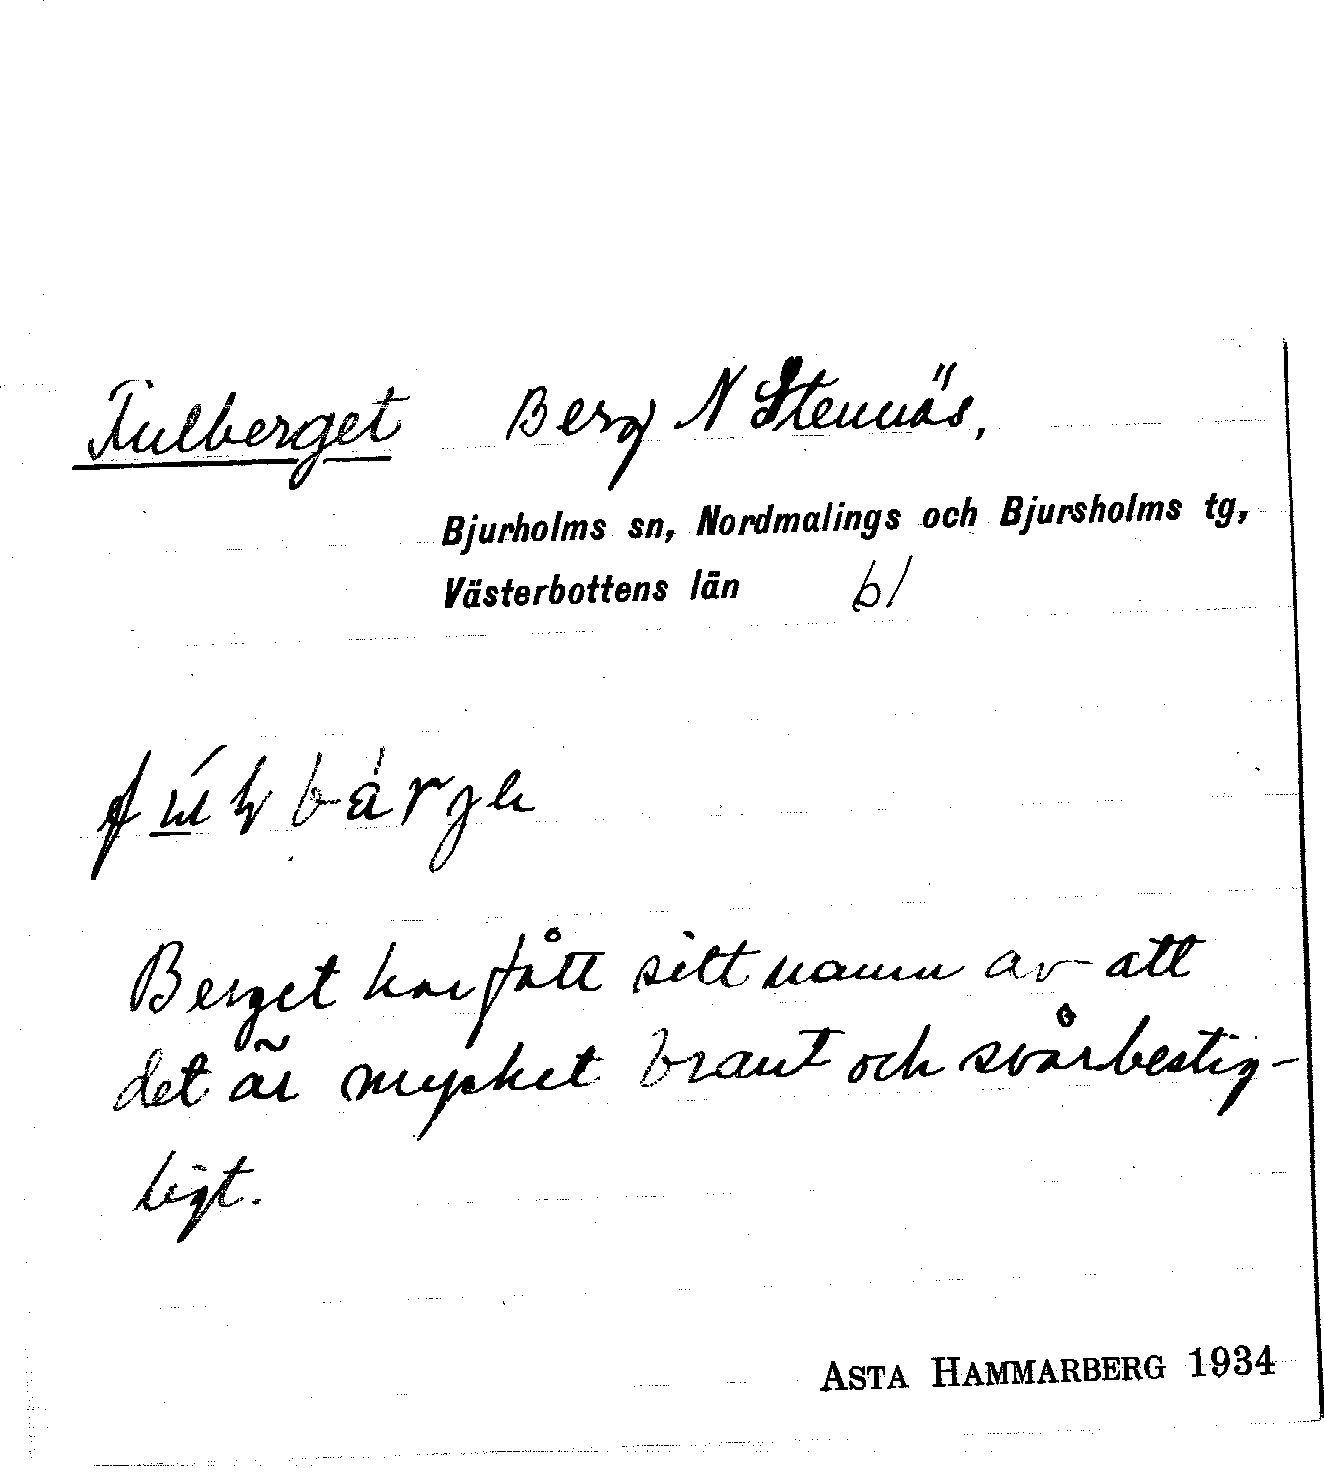 Fulberget Berg N Stennäs,
Bjurholms sn, Nordmalings och Bjursholms tg,
Västerbottens län b1
Berget har fått sitt namn av att
det är mycket brant och svårbestig-
ligt.
ASTA HAMMARBERG 1934